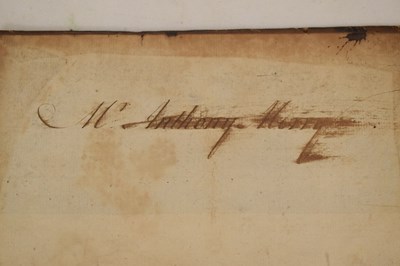 Mr Anthony Merry